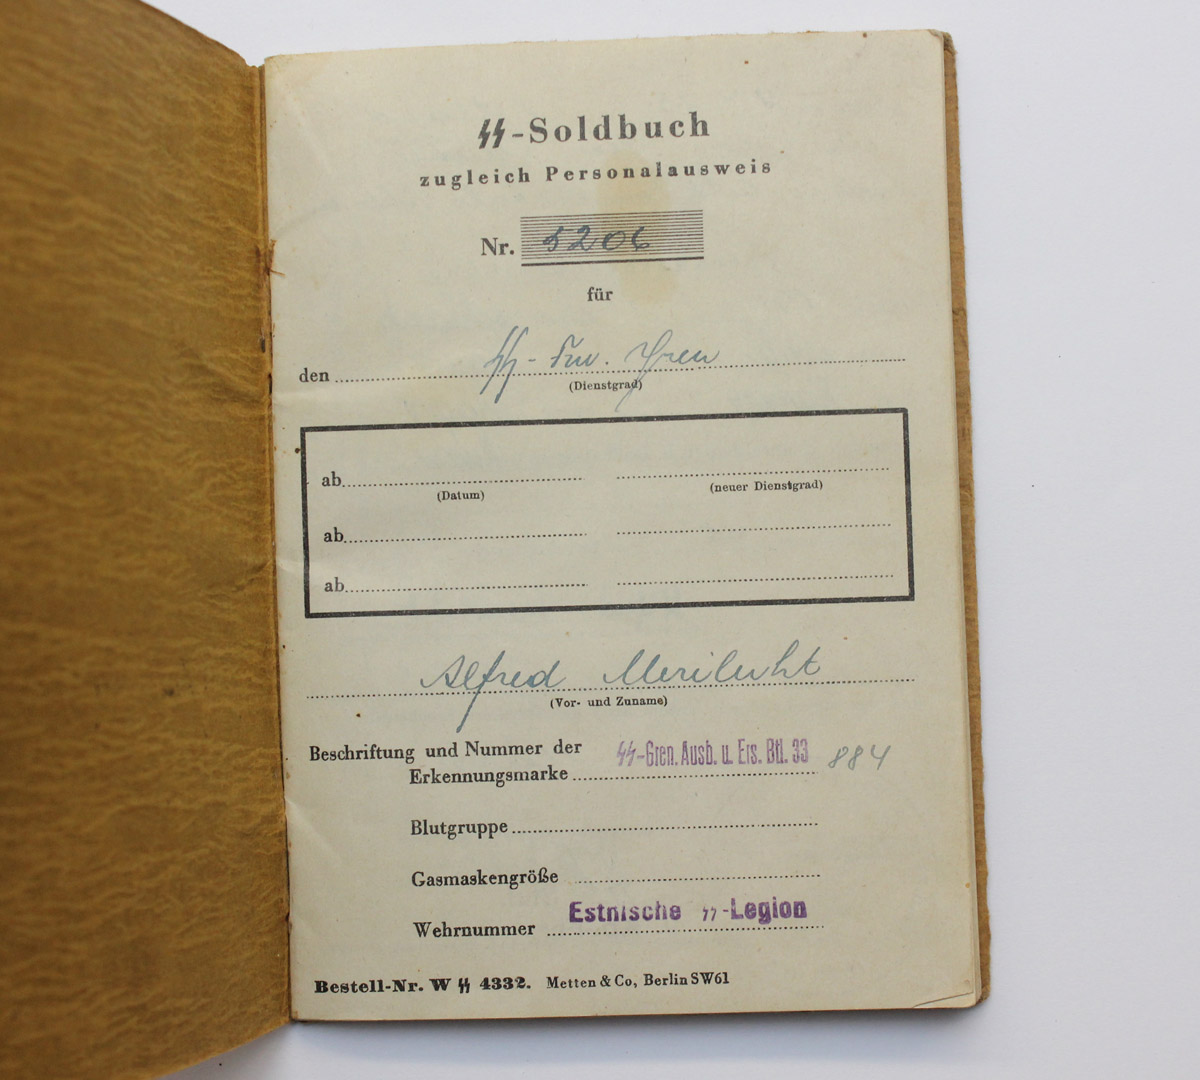 SS-Soldbuch
zugleich Personalausweis
Nr. 5206
für
den SS-
(Dienstgrad)
ab
(Datum) (neuer Dienstgrad)
ab
ab
Alfred
(Vor- und Zuname)
Beschriftung und Nummer der SS-Gren. Ausb. u. Ers. Btl. 33 884
Erkennungsmarke
Blutgruppe
Gasmaskengröße
Wehrnummer Estnische SS-Legion
Bestell-Nr. W SS 4332. Metten & Co, Berlin SW61